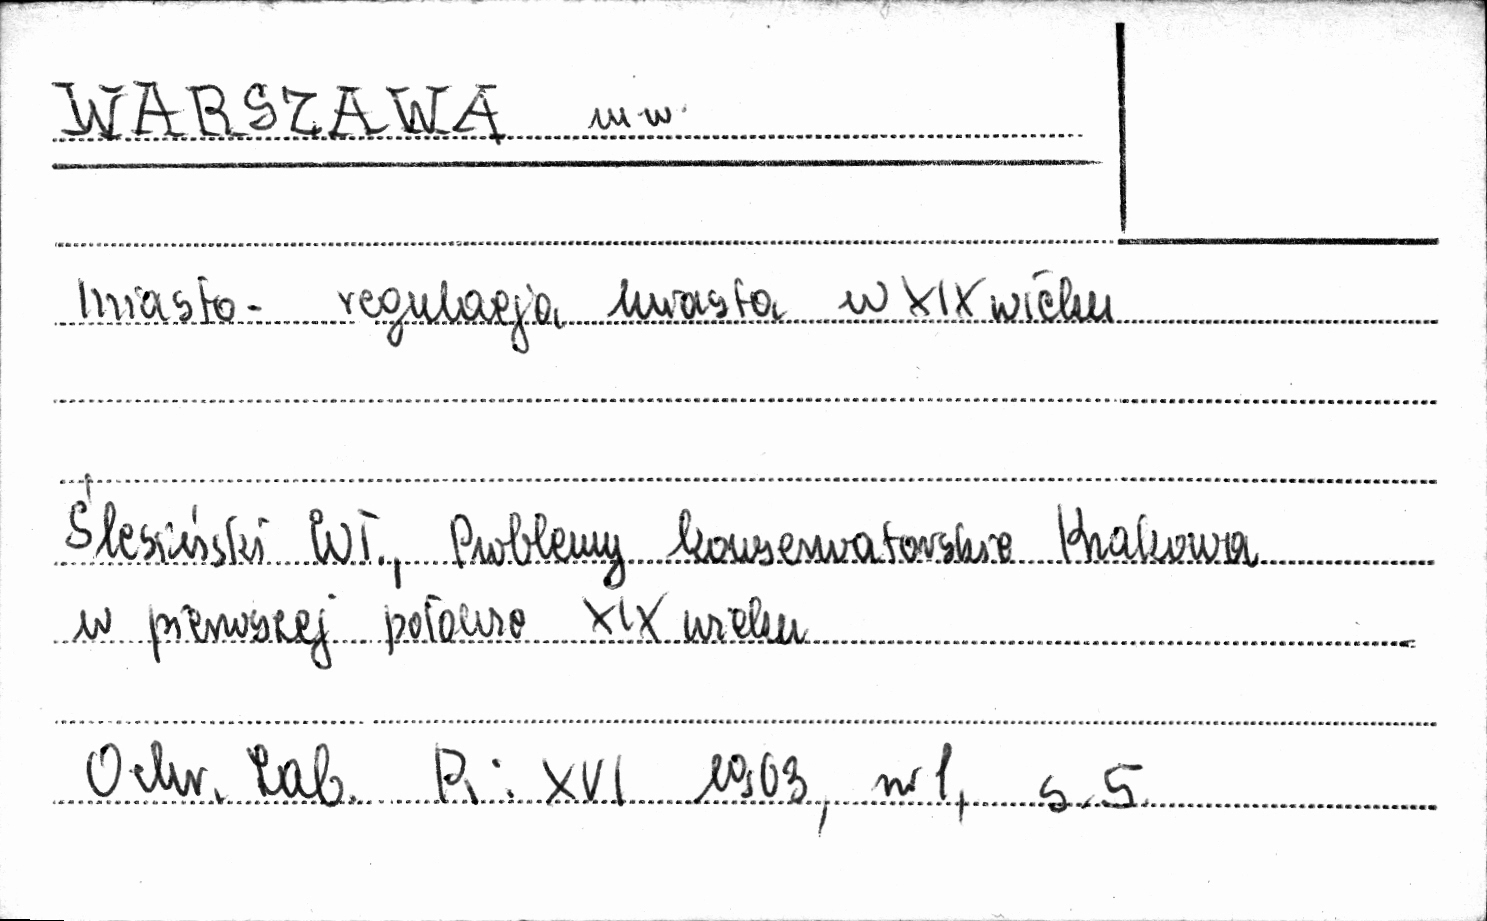 WARSZAWA m.w.
miasto - regulacja miasta w XIX wieku
Ślesiński Wł., Problemy konserwatorskie Krakowa
w pierwszej połowie XIX wieku
Ochr. Zab. R: XVI 1963, nr 1, s. 5